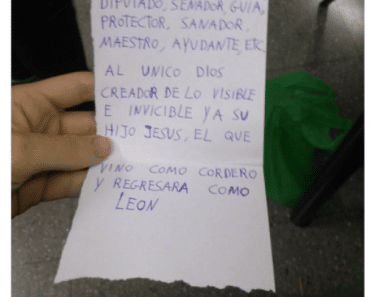 DIPUTADO, SENADOR, GUIA,
PROTECTOR, SANADOR,
MAESTRO, AYUDANTE, ETC
AL UNICO DIOS
CREADOR DE LO VISIBLE
E INVICIBLE Y A SU
HIJO JESUS, EL QUE
VINO COMO CORDERO
Y REGRESARA COMO
LEON